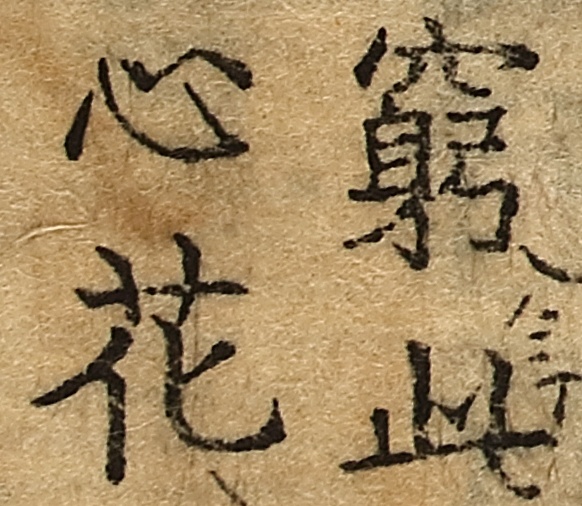 窮此
心花